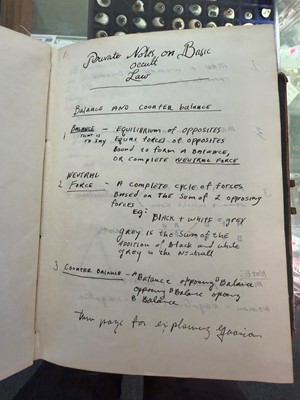 Private Notes on Basic
Occult
Law
BALANCE AND COUNTER balance
1 BALANCE - EQUILIBRIUM of OPPOSITES
THAT IS TO SAY EQUAL FORCES of OPPOSITES
Bound to form A BALANCE,
OR COMPLETE NEUTRAL FORCE
NEUTRAL
2 FORCE - A COMPLETE CYCLE of FORCES
BASED ON THE SUM of 2 OPPOSING
FORCES
Eg: BLACK + WHITE = grey
grey is the SUM of the
Addition of Black and white
grey is the Neutral
3 COUNTER BALANCE - "A" Balance opposing "B" Balance
opposing "A" Balance
"B" Balance
This page for explaining